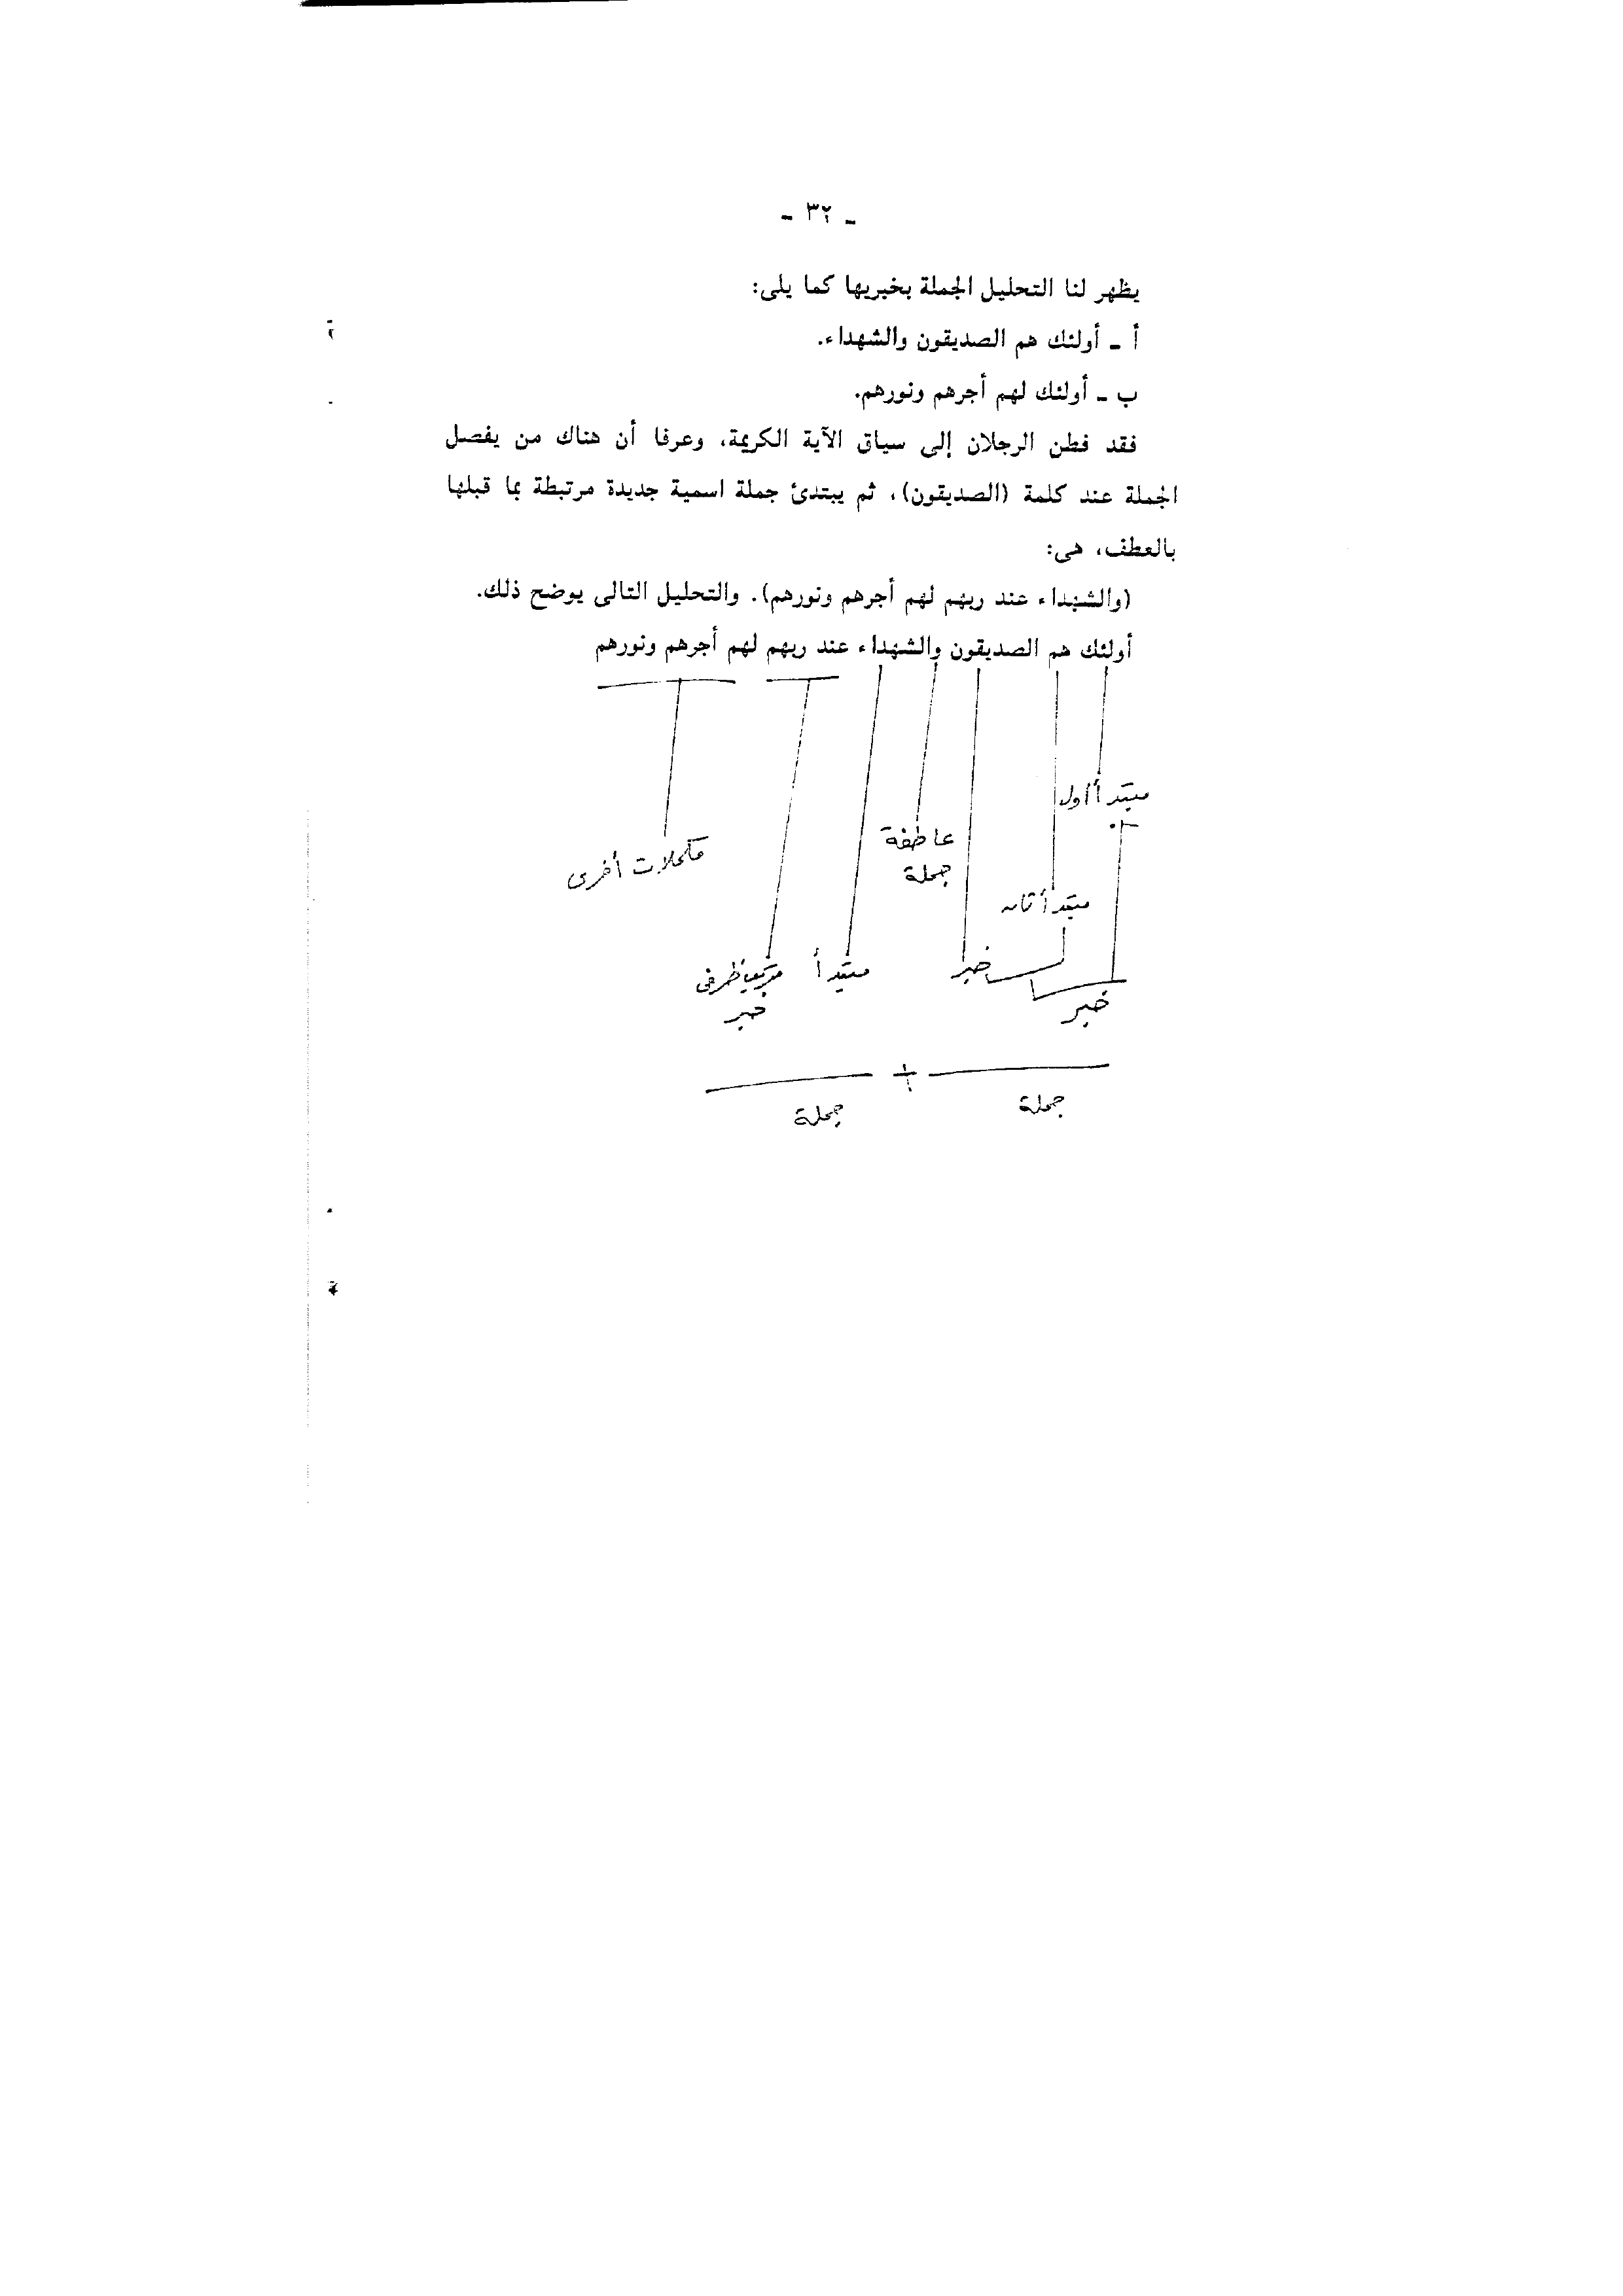 - ٣٢ -
يظهر لنا التحليل الجملة بخبريها كما يلى:
أ - أولئك هم الصديقون والشهداء.
ب - أولئك لهم أجرهم ونورهم.
فقد فطن الرجلان إلى سياق الآية الكريمة، وعرفا أن هناك من يفصل
الجملة عند كلمة (الصديقون)، ثم يبتدئ جملة اسمية جديدة مرتبطة بما قبلها
بالعطف، هى:
(والشهداء عند ربهم لهم أجرهم ونورهم). والتحليل التالى يوضح ذلك.
أولئك هم الصديقون والشهداء عند ربهم لهم أجرهم ونورهم
مبتدأ أول
عاطفة
جملة
مكملات أخرى
مبتدأ ثان
خبر
مبتدأ
ظرفى
خبر
خبر
+
جملة
جملة